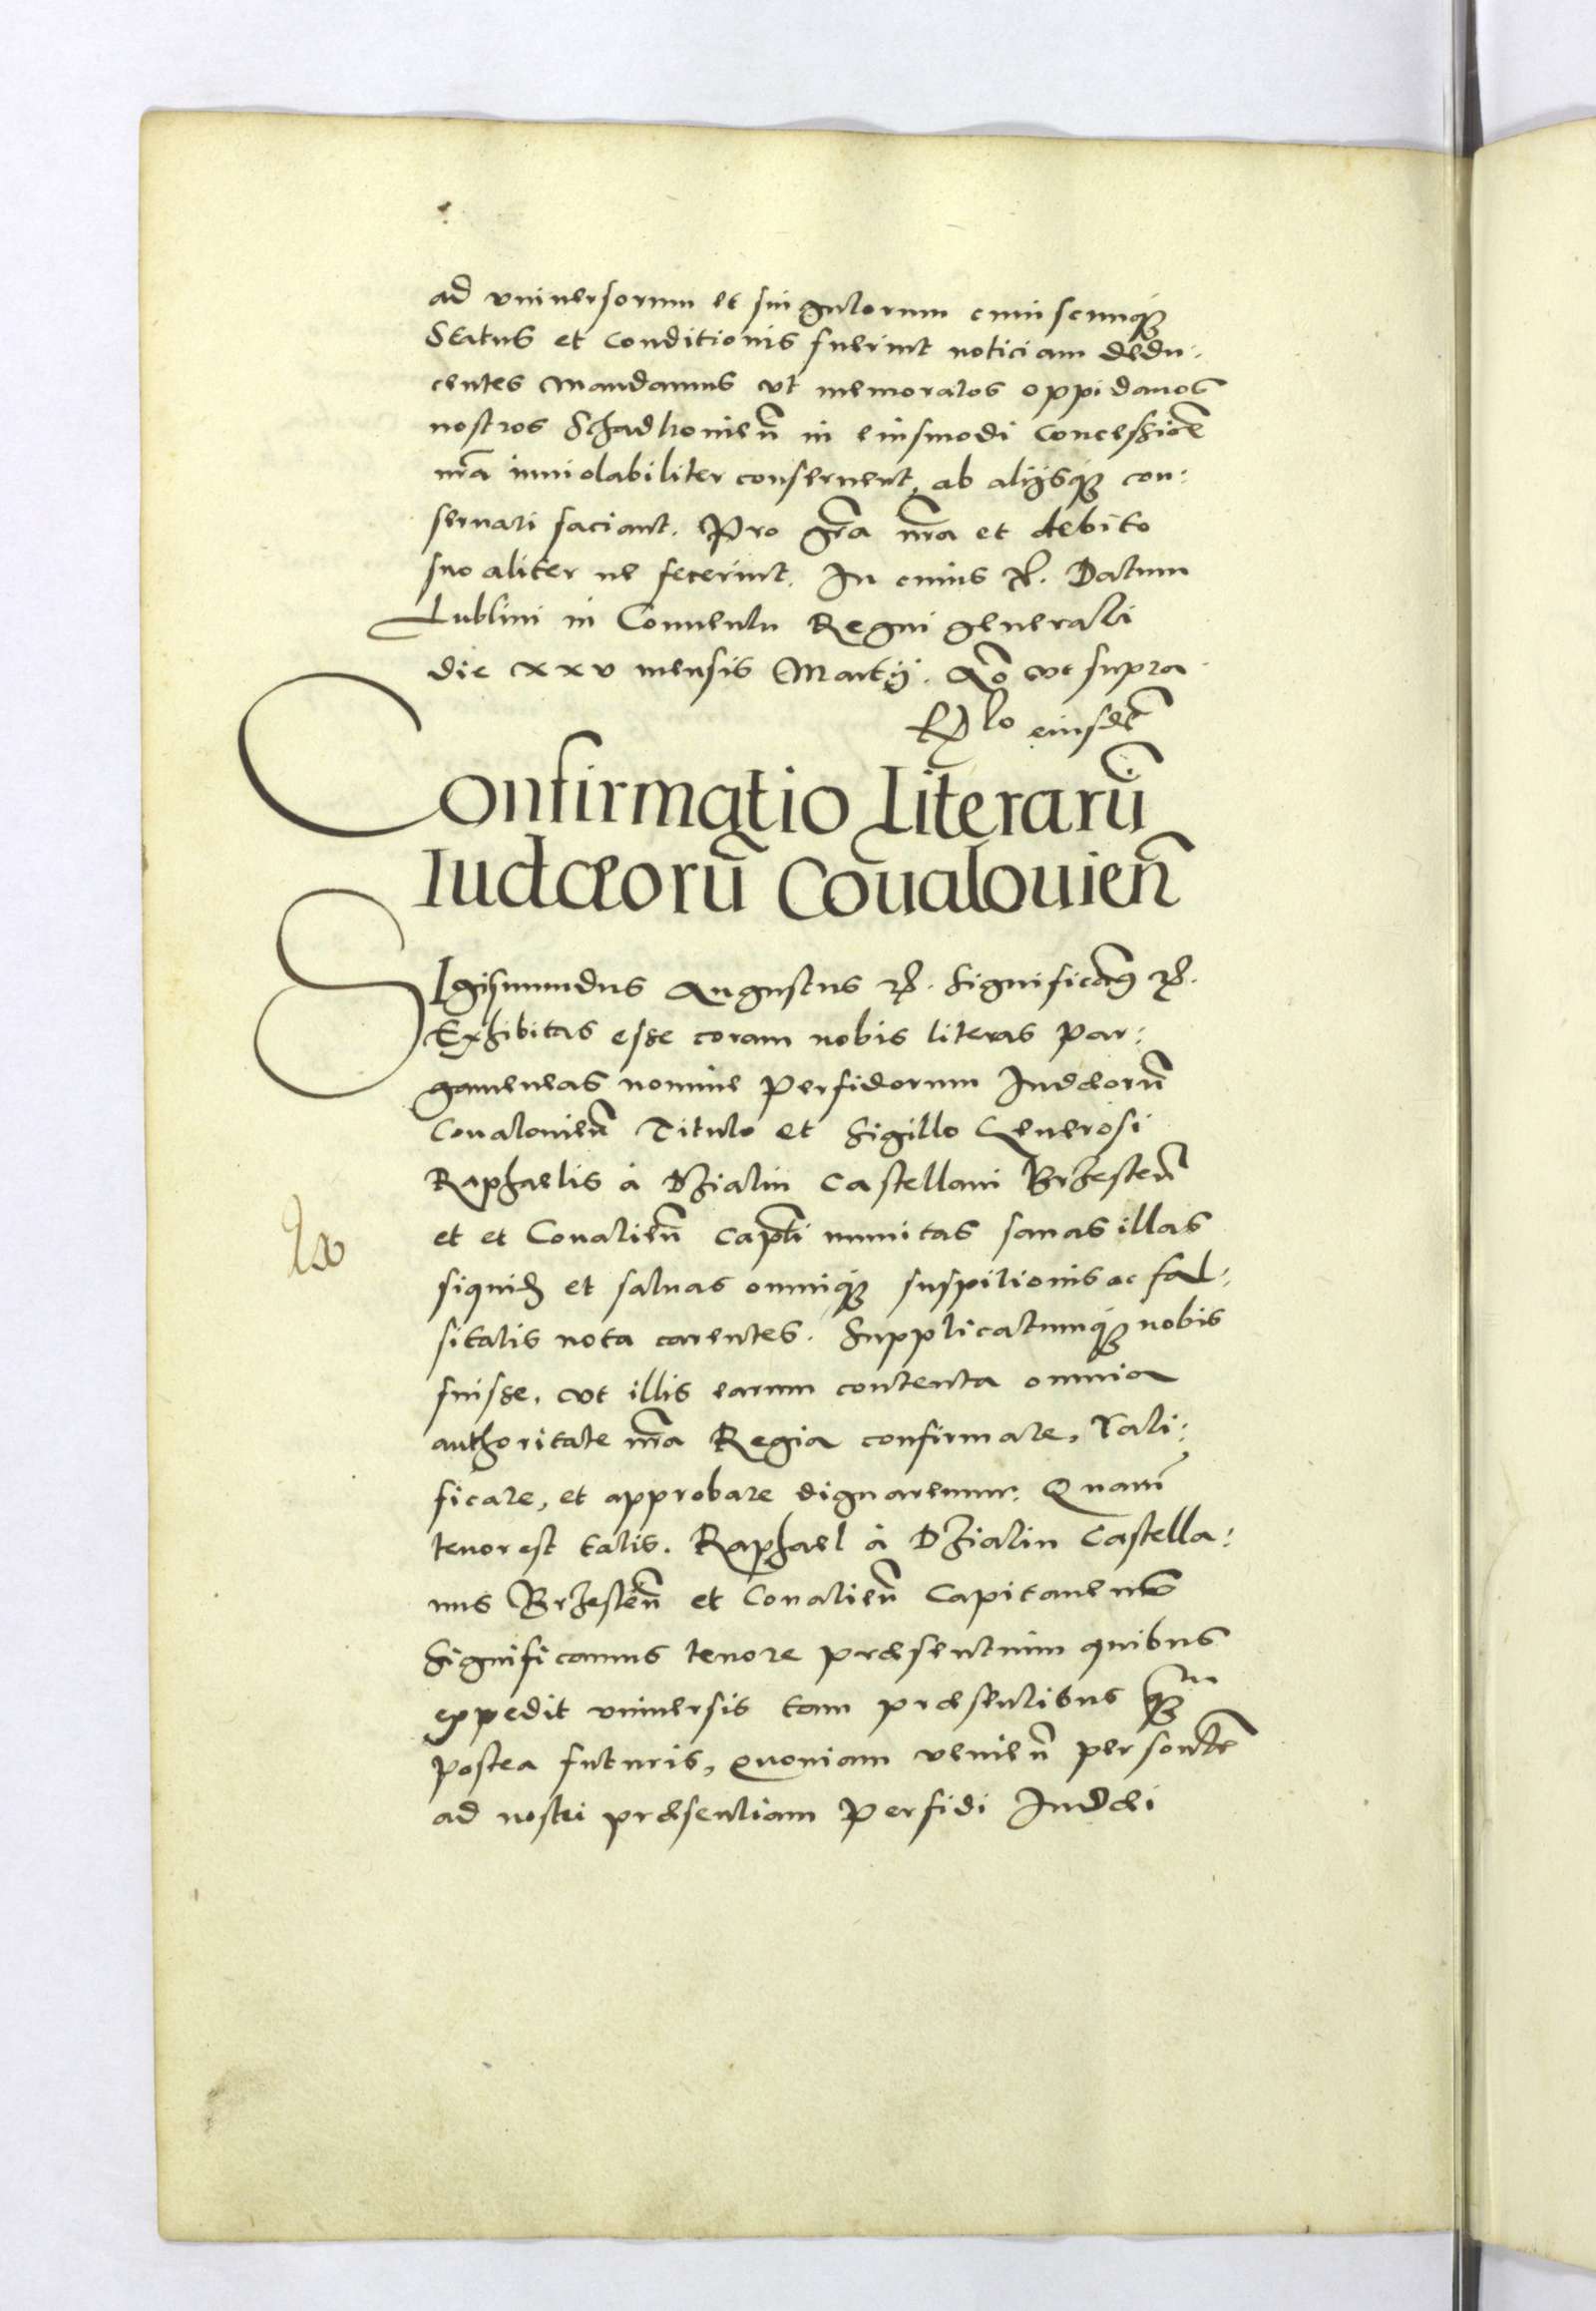 ad vniuersorum et singulorum cuiuscunq₃
Status et conditionis fuerint noticiam dedu:
centes mandamus vt memoratos oppidanos
nostros Schadkouieñ in eiusmodi concessiõe
nr̃a inuiolabiliter conseruent, ab alijsq₃ con:
seruari faciant. Pro gr̃a nr̃a et debito
suo aliter ne fecerint. In cuius &. Datum
Lublini in Conuentu Regni generali
die xxv mensis Martij. Aõ vt supra
Rlo eiusdẽ
Confirmatio Literarũ
Iudæorũ Coualouieñ
SIgismundus Augustus &. Significam9 &.
Exhibitas esse coram nobis literas par:
gameneas nomine Perfidorum Iudæorũ
Coualouieñ Titulo et Sigillo Generosi
Raphaelis à Dzialin Castellani Brzesteñ
et et Coualieñ Capti munitas sanas illas
siquid et saluas omniq₃ suspitionis ac fal:
sitatis nota carentes. Supplicatumq₃ nobis
fuisse, vt illis earum contenta omnia
authoritate nr̃a Regia confirmare, rati:
ficare, et approbare dignaremur. Quarũ
tenor est talis. Raphael à Dzialin Castella:
nus Brzesteñ et Coualieñ Capitaneus
Significamus tenore præsentium quibus
expedit vniuersis tam præsentibus q₃
postea futuris, quoniam venieñ
ad nostri præsentiam Perfidi Iudæi